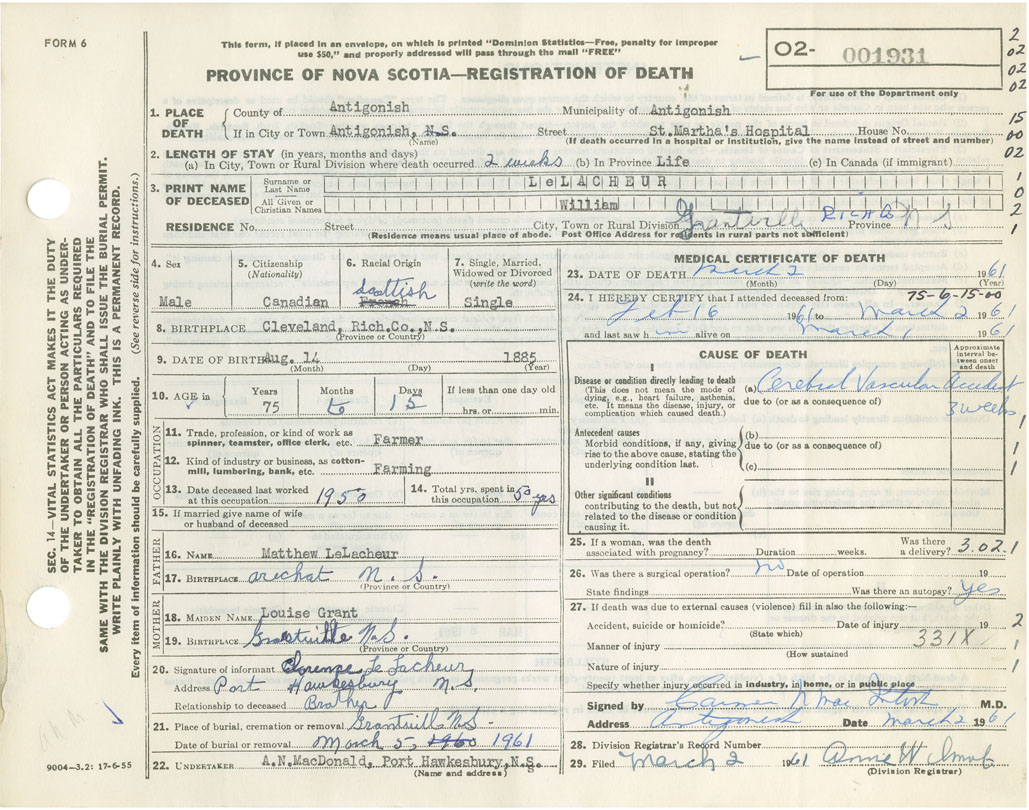 FORM 6
This form, if placed in an envelope, on which is printed "Dominion Statistics—Free, penalty for improper
use $50," and properly addressed will pass through the mail "FREE"
PROVINCE OF NOVA SCOTIA—REGISTRATION OF DEATH
O2- 001931
For use of the Department only
2
02
02
02
15
00
02
1
0
2
1
1. PLACE OF DEATH
County of Antigonish Municipality of Antigonish
If in City or Town Antigonish, N.S. Street St.Martha's Hospital House No.
(Name) (If death occurred in a hospital or institution, give the name instead of street and number)
2. LENGTH OF STAY (in years, months and days)
(a) In City, Town or Rural Division where death occurred 2 weeks (b) In Province Life (c) In Canada (if immigrant)
3. PRINT NAME OF DECEASED
Surname or Last Name LeLACHEUR
All Given or Christian Names William
RESIDENCE No. Street City, Town or Rural Division Grantville RICH Co Province N S
(Residence means usual place of abode. Post Office Address for residents in rural parts not sufficient)
4. Sex
Male
5. Citizenship
(Nationality)
Canadian
6. Racial Origin
scottish
French
7. Single, Married,
Widowed or Divorced
(write the word)
Single
8. BIRTHPLACE Cleveland, Rich.Co.,N.S.
(Province or Country)
9. DATE OF BIRTH Aug. 14 1885
(Month) (Day) (Year)
10. AGE in Years Months Days If less than one day old
75 6 15 hrs. or min.
OCCUPATION
11. Trade, profession, or kind of work as
spinner, teamster, office clerk, etc. Farmer
12. Kind of industry or business, as cotton-
mill, lumbering, bank, etc. Farming
13. Date deceased last worked
at this occupation 1950
14. Total yrs. spent in
this occupation 50 yrs
15. If married give name of wife
or husband of deceased
FATHER
16. NAME Matthew LeLacheur
17. BIRTHPLACE arichat N. S.
(Province or Country)
MOTHER
18. MAIDEN NAME Louise Grant
19. BIRTHPLACE Grantville N.S.
(Province or Country)
20. Signature of informant Clorence Le Lacheur
Address Port Hawkesbury N.S.
Relationship to deceased Brother
21. Place of burial, cremation or removal Grantvill N.S-
Date of burial or removal March 5, 1960 1961
22. UNDERTAKER A.N.MacDonald, Port Hawkesbury,N.S.
(Name and address)
MEDICAL CERTIFICATE OF DEATH
23. DATE OF DEATH March 2 1961
(Month) (Day) (Year)
75-6-15-00
24. I HEREBY CERTIFY that I attended deceased from:
Feb 16 1961 to March 2 1961
and last saw him alive on March 1 1961
CAUSE OF DEATH
Approximate interval between onset and death
I
Disease or condition directly leading to death
(This does not mean the mode of
dying, e.g., heart failure, asthenia,
etc. It means the disease, injury, or
complication which caused death.)
(a) Cerebral Vascular Accident
due to (or as a consequence of) 3 weeks
Antecedent causes
Morbid conditions, if any, giving
rise to the above cause, stating the
underlying condition last.
(b)
due to (or as a consequence of)
(c)
II
Other significant conditions
contributing to the death, but not
related to the disease or condition
causing it.
1
1
1
25. If a woman, was the death Was there
associated with pregnancy? Duration weeks. a delivery? 3.02.1
26. Was there a surgical operation? no Date of operation 19
State findings Was there an autopsy? Yes
27. If death was due to external causes (violence) fill in also the following:—
Accident, suicide or homicide? Date of injury 19 2
(State which)
Manner of injury 331X 1
(How sustained)
Nature of injury 1
Specify whether injury occurred in industry, in home, or in public place
Signed by M.D.
Address Antigonish Date March 2 1961
28. Division Registrar's Record Number
29. Filed March 2 1961 Annie W
(Division Registrar)
SEC. 14—VITAL STATISTICS ACT MAKES IT THE DUTY
OF THE UNDERTAKER OR PERSON ACTING AS UNDER-
TAKER TO OBTAIN ALL THE PARTICULARS REQUIRED
IN THE "REGISTRATION OF DEATH" AND TO FILE THE
SAME WITH THE DIVISION REGISTRAR WHO SHALL ISSUE THE BURIAL PERMIT.
WRITE PLAINLY WITH UNFADING INK. THIS IS A PERMANENT RECORD.
Every item of information should be carefully supplied. (See reverse side for instructions.)
9004-3.2: 17-6-55